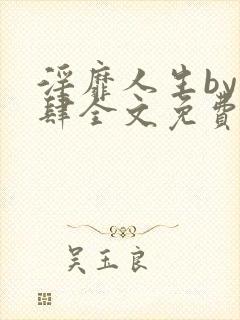 淫靡人生by
肆全文免費
吴玉良